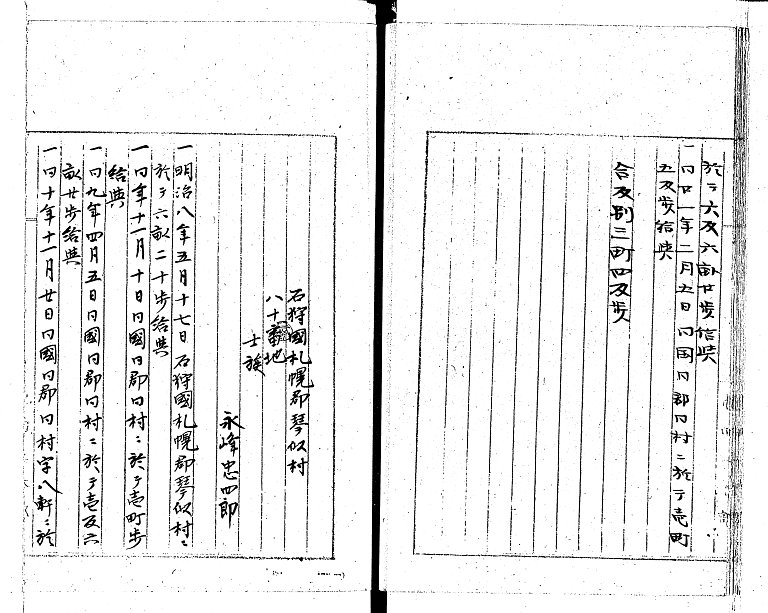 於テ六反六畝廿歩給與
一同廿一年二月五日同国同郡同村ニ於テ壱町
五反歩給與
合反別三町四反歩
石狩國札幌郡琴似村
八十番地
士族
永峰忠四郎
一明治八年五月十七日石狩國札幌郡琴似村ニ
於テ六畝二十歩給與
一同年十一月十日同國同郡同村ニ於テ壱町歩
給與
一同九年四月五日同國同郡同村ニ於テ壱反六
畝廿歩給與
一同十年十一月廿日同國同郡同村字八軒ニ於